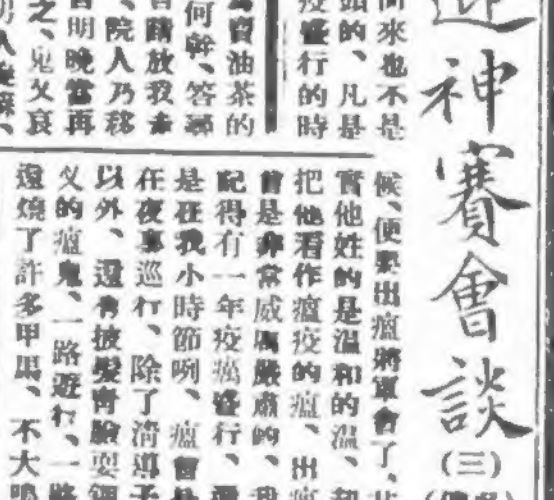 迎神賽會談
(三)
而來也不是
頭的、凡是
疫盛行的時
賣油茶的
何幹、答
放我
、院人乃移
明晚當再
之、鬼又哀
候、便要出瘟將軍會了、
實他姓的是溫和的溫、却
把他看作瘟疫的瘟、出
曾是非常威嚴肅的、我
記得有一年疫癘盛行、還
是在我小時節咧、瘟會
在夜裏巡行、除了清導子
以外、還有披髮青臉
义的瘟鬼、一路遊行、一路
還燒了許多甲馬、不大